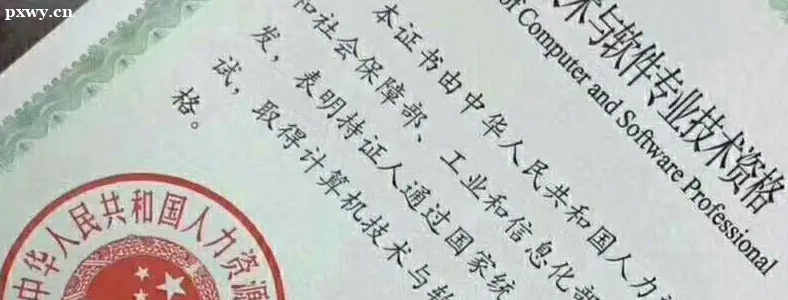 pxwy.cn
术与软件专业技术资格
of Computer and Software Professional
本证书由中华人民共和国人力
和社会保障部、工业和信息化部
发，表明持证人通过国家统
试，取得计算机技术与软
格。
中华人民共和国人力资源